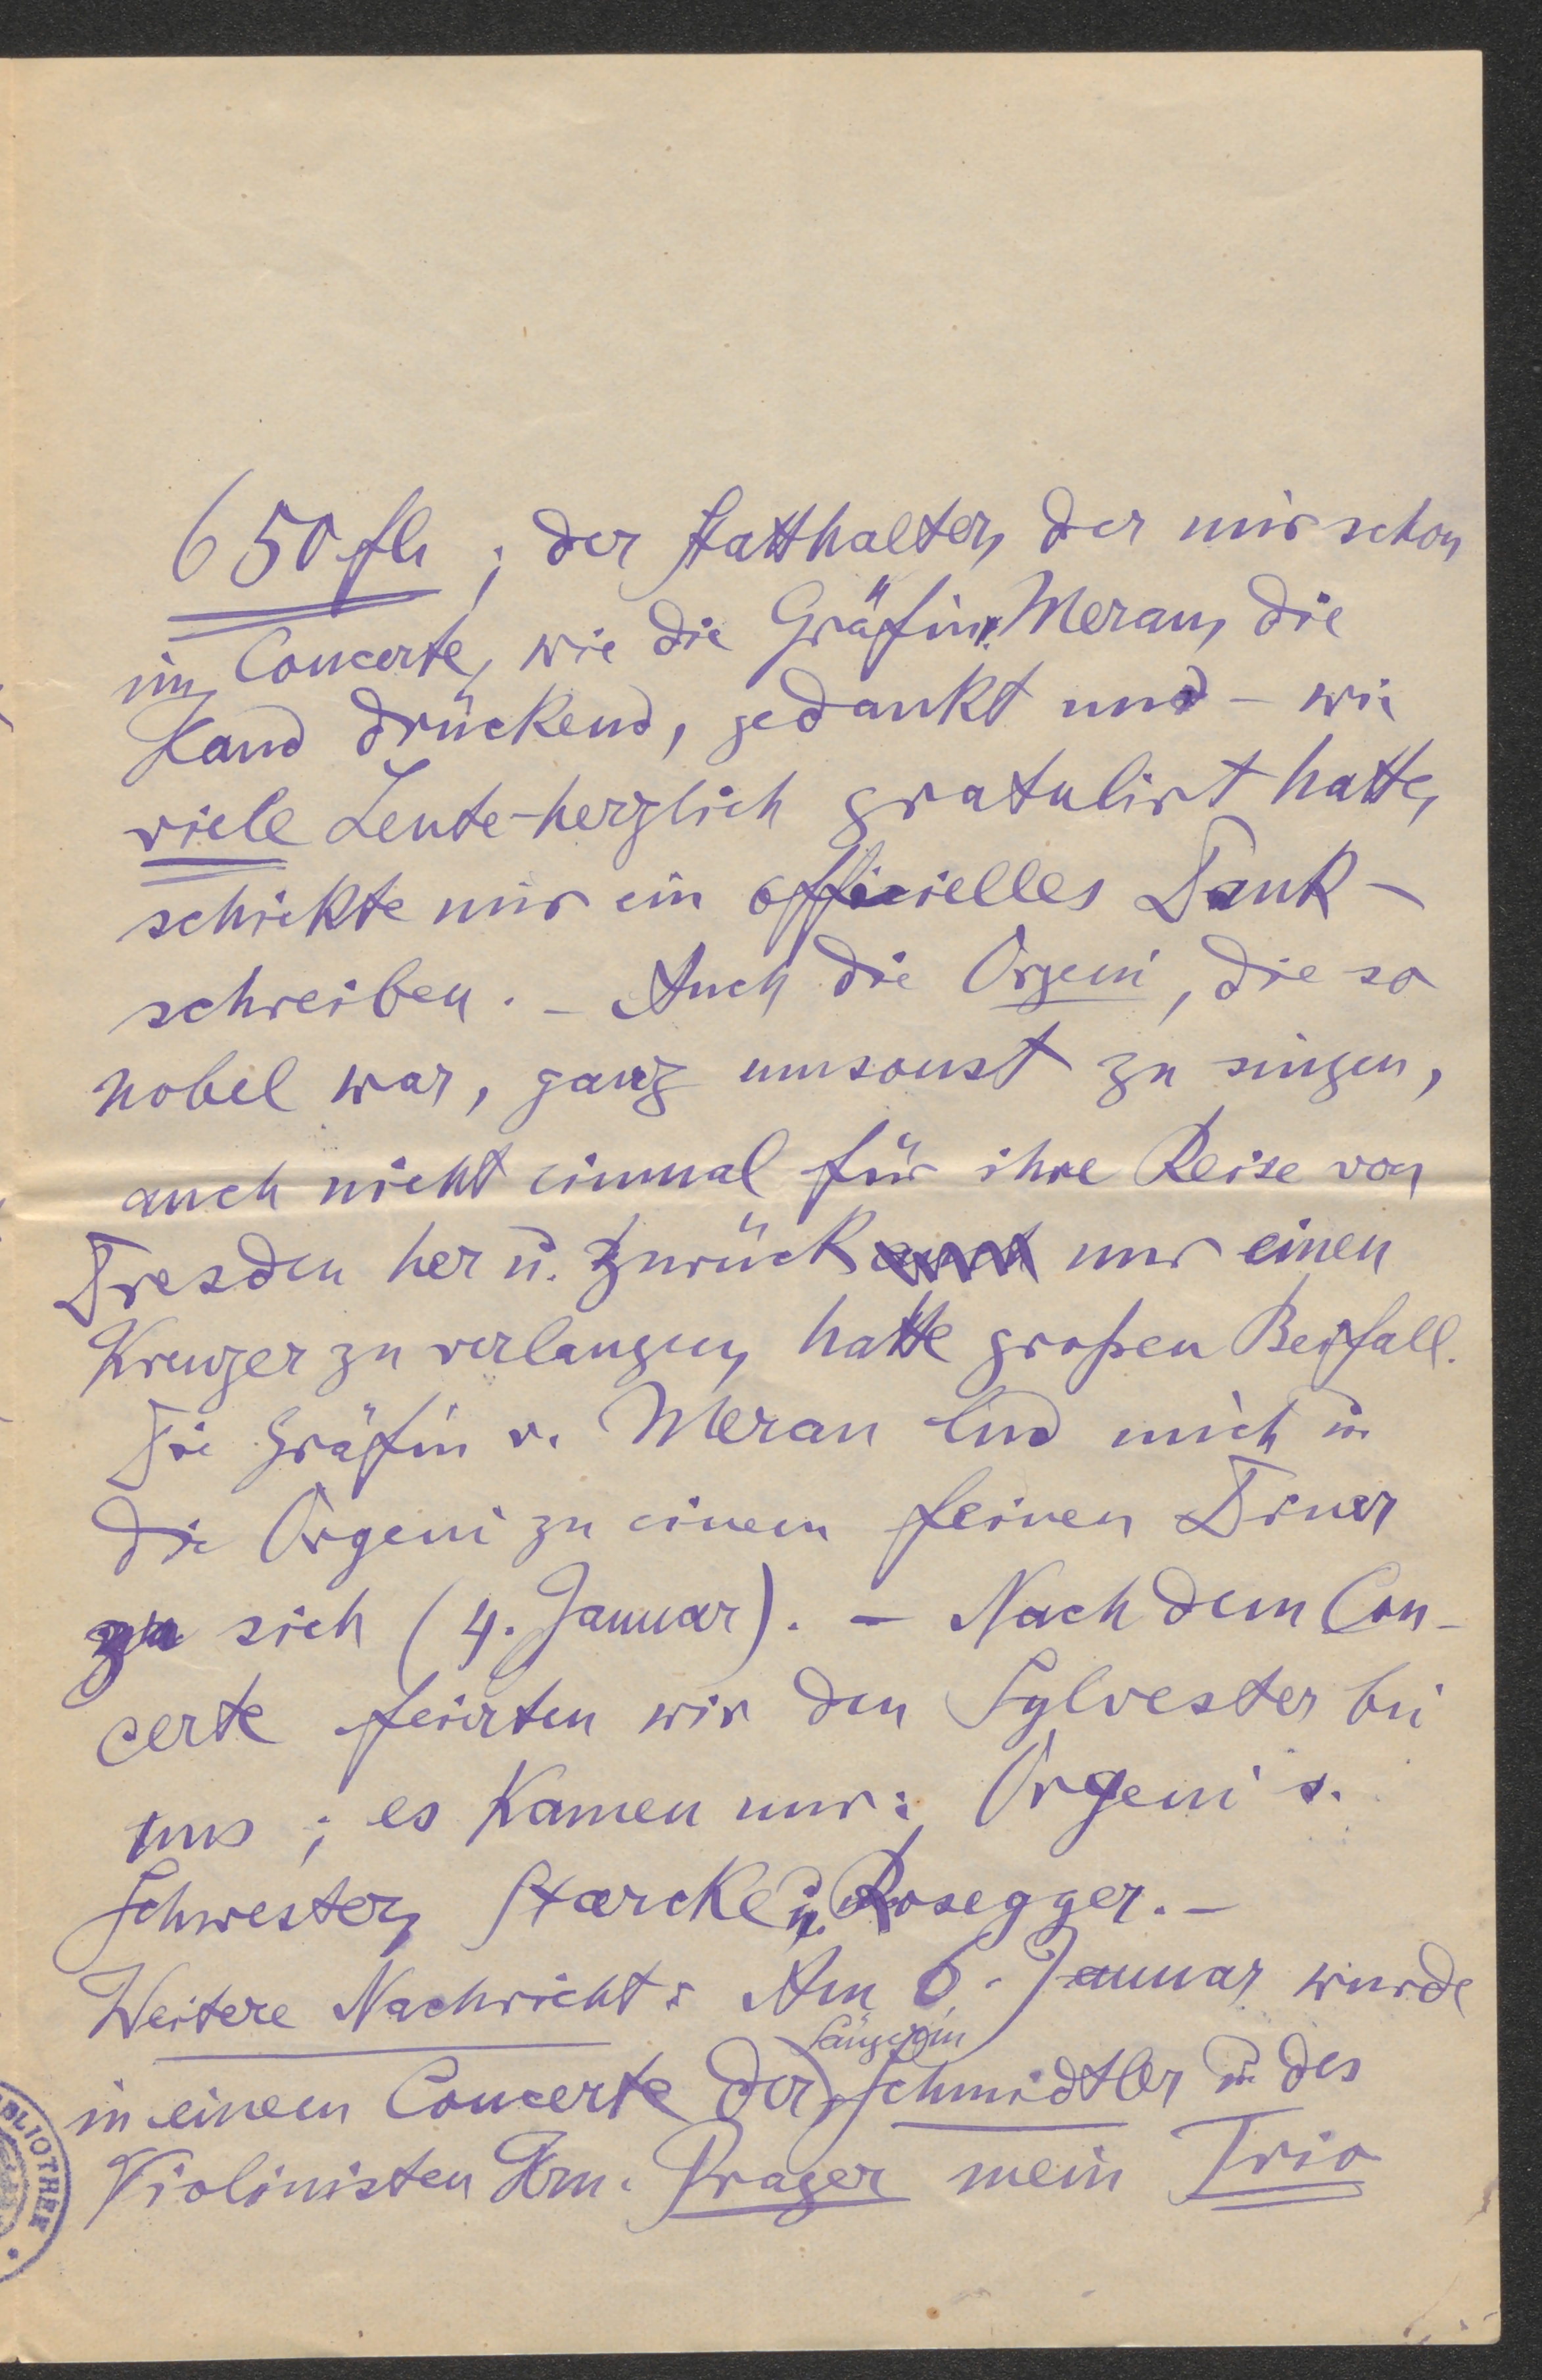 650 fl. ; der Statthalter, der mir schon
im Concerte, wie die Gräfin Meran, die
Hand drückend, gedankt und – wie
viele Leute – herzlich gratulirt hatte,
schickte mir ein officielles Dank-
schreiben. – Auch die Orgeni, die so
nobel war, ganz umsonst zu singen,
auch nicht einmal für ihre Reise von
Dresden her u. zurück nur einen
Kreuzer zu verlangen, hatte großen Beifall.
Die Gräfin v. Meran lud mich u.
die Orgeni zu einem feinen Diner
zu sich (4. Januar). – Nach dem Con-
certe feierten wir den Sylvester bei
uns ; es kamen nur: Orgeni s.
Schwester, Starcke u. Rosegger. –
Weitere Nachricht: Am 6. Januar wurde
Sängerin
in einem Concerte der Schmidtler u. des
Violinisten Hrn. Prager mein Trio
BIBLIOTHEK